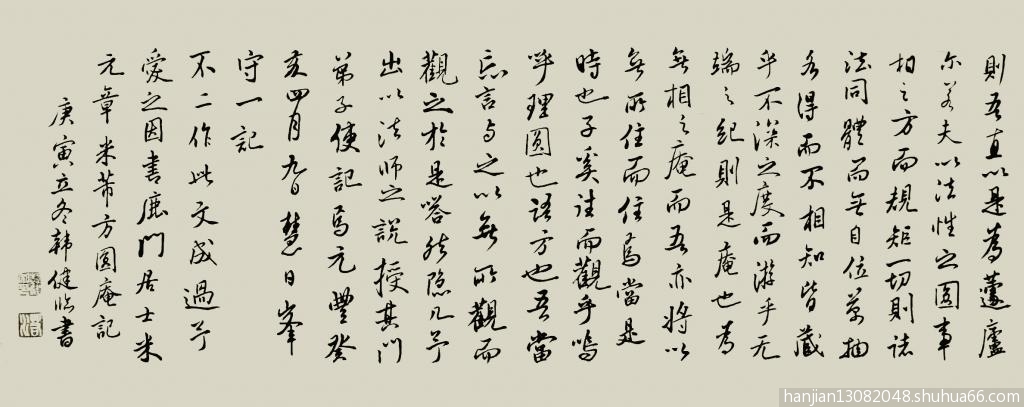 則吾直以是為蘧廬
尔若夫以法性之圓事
相之方而規矩一切則諸
法同體而無自位萬抽
各得而不相知皆藏
乎不深之度而游乎无
端之紀則是庵也為
無相之庵而吾亦將以
無所住而住焉當是
時也子奚往而觀乎嗚
呼理圓也語方也吾當
忘言与之以無所觀而
觀之於是嗒然隱几予
出以法師之說授其門
弟子使記焉元豐癸
亥四月九日慧日峯
守一記
不二作此文成過予
愛之因書鹿門居士米
元章米芾方圓庵記
庚寅立冬韩健临書
hanjian13082048.shuhua66.com